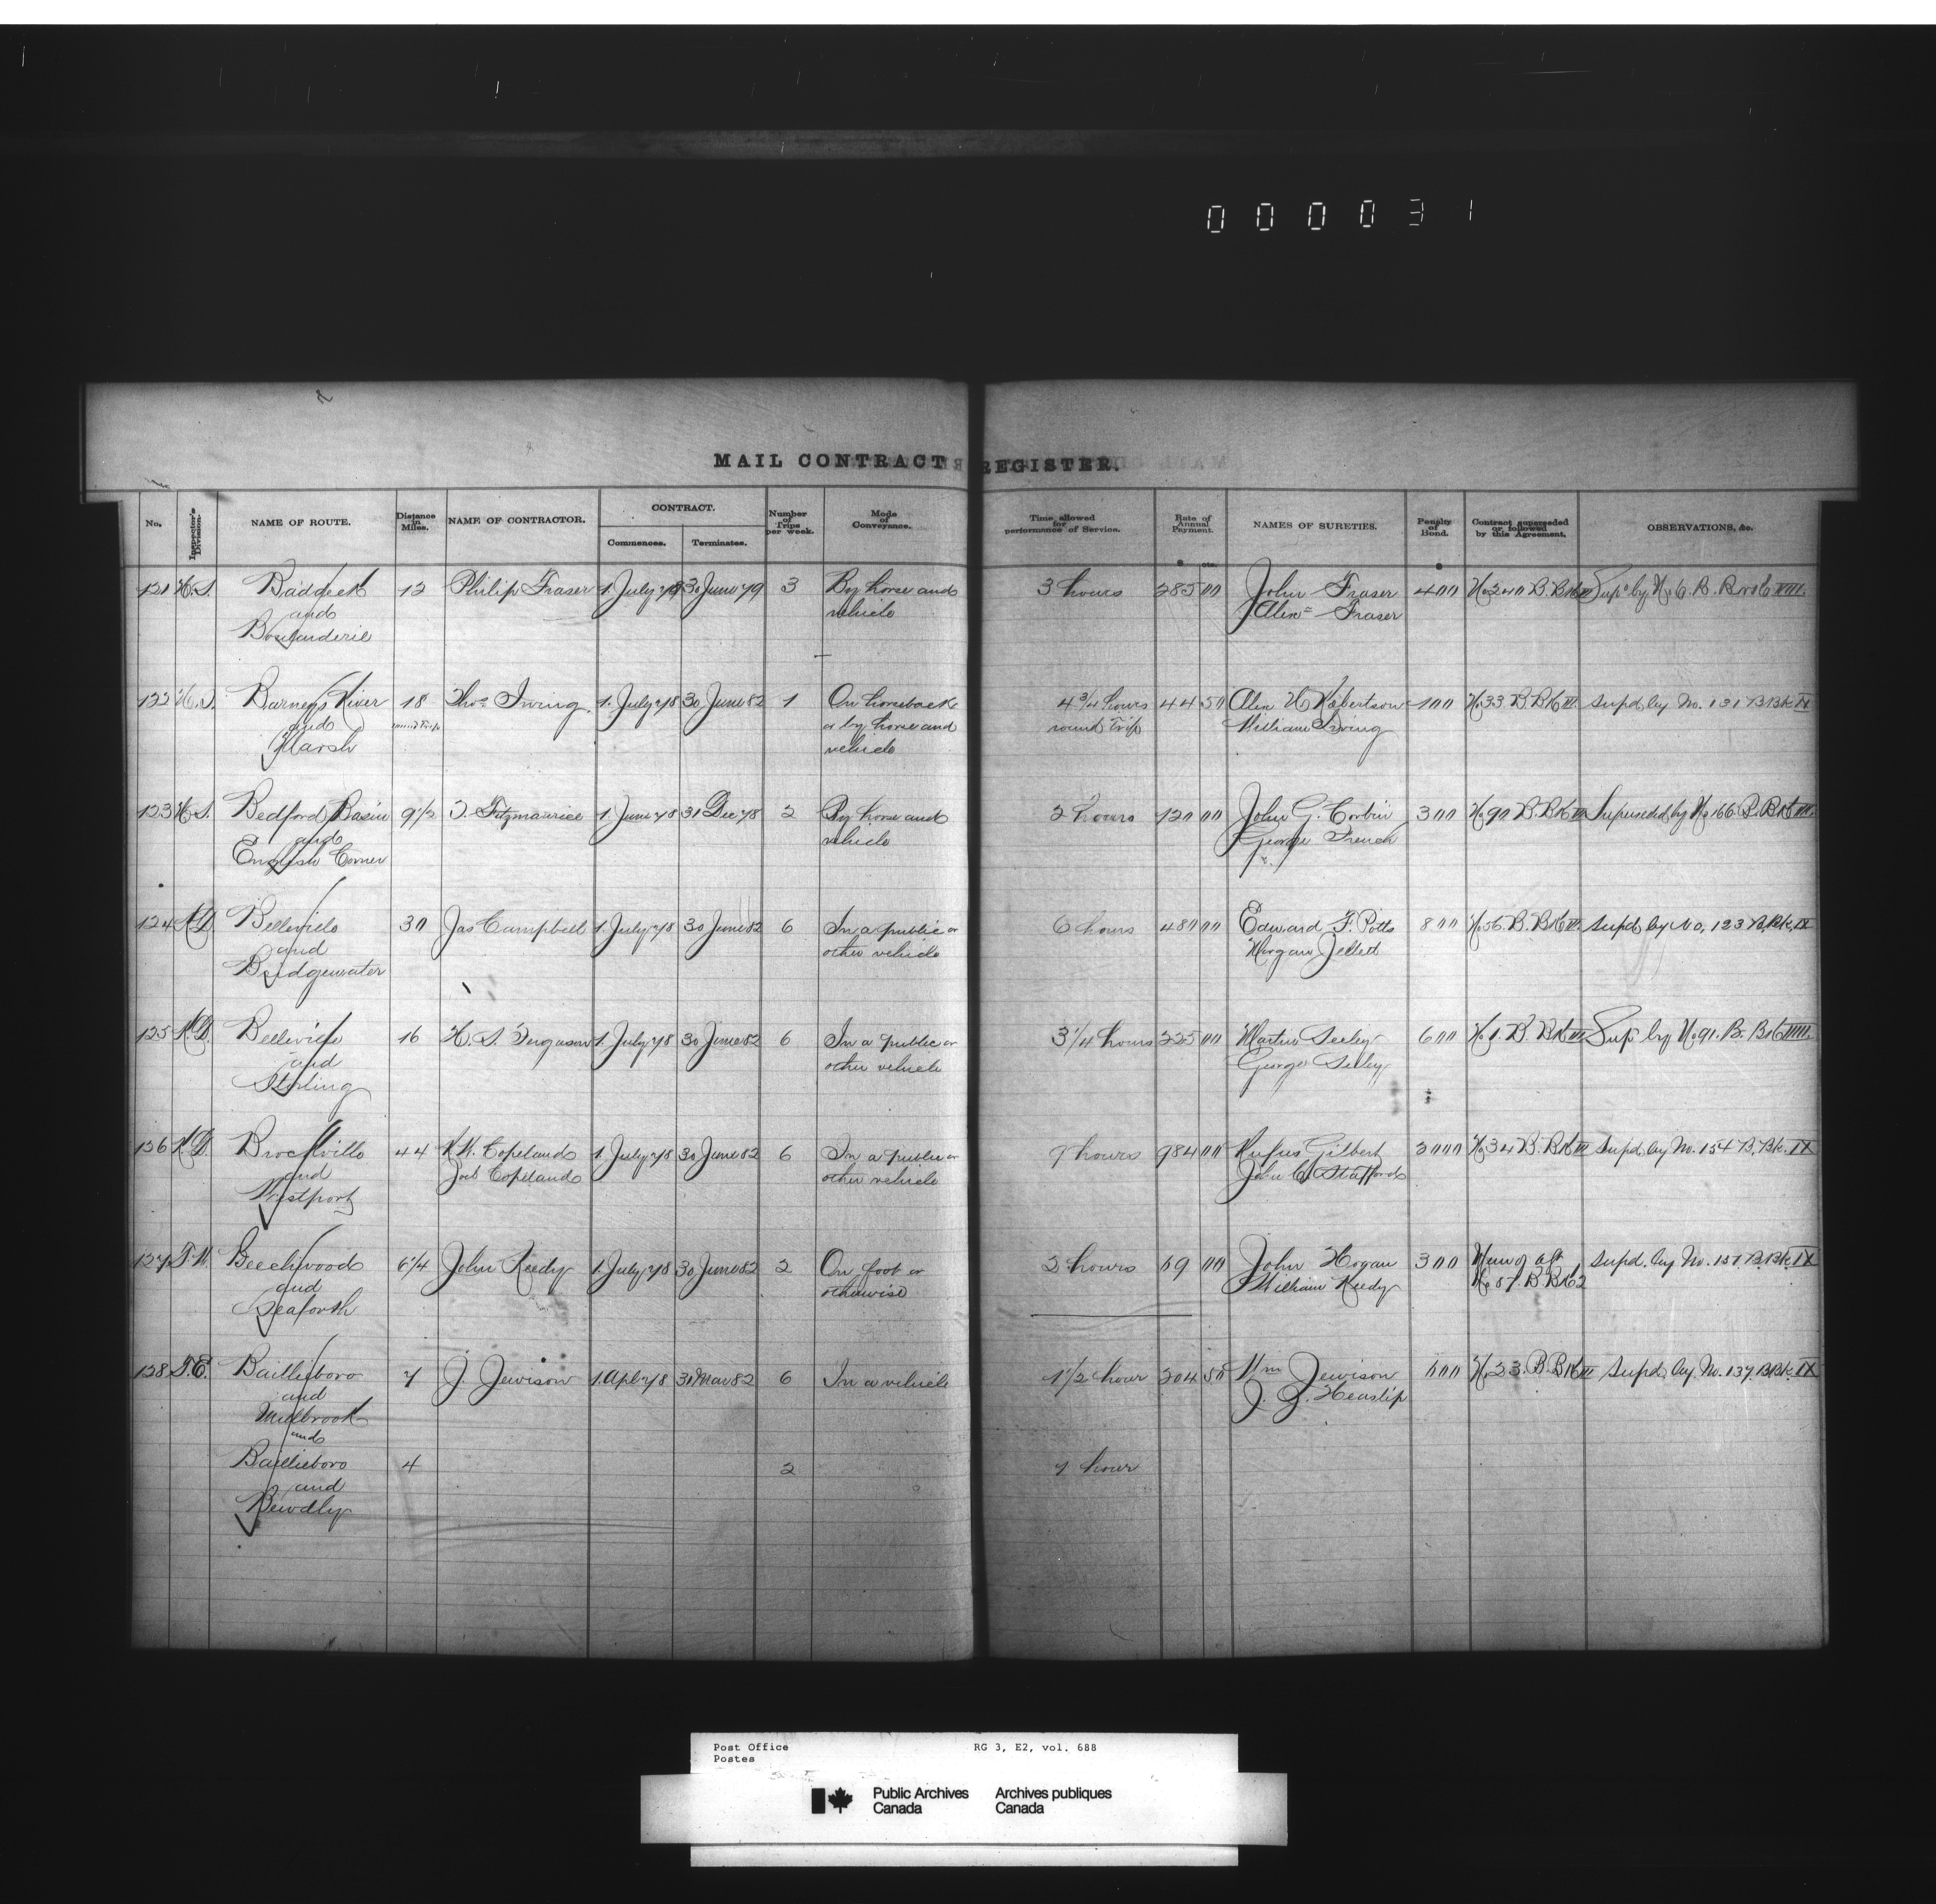 000031
MAIL CONTRACT REGISTER.
No. Inspector's Division. NAME OF ROUTE. Distance in Miles. NAME OF CONTRACTOR. CONTRACT. Commences. Terminates. Number of Trips per week. Mode of Conveyance. Time allowed for performance of Service. Rate of Annual Payment. NAMES OF SURETIES. Penalty of Bond. Contract superseded or followed by this Agreement. OBSERVATIONS, &c.
$ cts. $
121 N.S. Baddeck 12 Philip Fraser 1 July 78 30 June 79 3 By horse and 3 hours 285 00 John Fraser 400 No 240 B. Bk Sup by No 6. B. Book VIII.
and vehicle Alexr Fraser
Boulanderie
122 N.S. Barneys River 18 Thos Irving 1 July 78 30 June 82 1 On horseback 4 3/4 hours 44 50 Alex Robertson 100 No 33 B. Bk III supd by No. 131 B Bk IX
and round trip or by horse and round trip William Irving
Marsh vehicle
123 N.S. Bedford Basin 9 1/2 T. Fitzmaurice 1 June 78 31 Dec 78 2 By horse and 2 hours 120 00 John G. Corbin 300 No 90 B. Bk Superseded by No 166 B. Bk III.
and vehicle George French
English Corner
124 K.D. Belleville 30 Jas Campbell 1 July 78 30 June 82 6 In a public or 6 hours 480 00 Edward F. Potts 800 No 56. B. Bk III supd by No. 123 B. Bk. IX
and other vehicle Morgan Jellett
Bridgewater
125 K.D. Belleville 16 H. S. Ferguson 1 July 78 30 June 82 6 In a public or 3 1/4 hours 225 00 Martin Seeley 600 No 1. B. Bk III Sup by No 91. B. Bk
and other vehicle George Seeley
Stirling
136 K.D. Brockville 44 Copeland 1 July 78 30 June 82 6 In a public or 9 hours 984 00 Rufus Gilbert 2000 No 34 B. Bk III supd. by No. 154 B. Bk. IX
and Job Copeland other vehicle John Stafford
Westport
127 T.W. Beechwood 6 1/4 John Reedy 1 July 78 30 June 82 2 On foot or 2 hours 69 00 John Hogan 300 Renewal of supd. by No. 157 B. Bk. IX
and otherwise William Reedy No 87. B. Bk 2
Seaforth
128 T.E. Bailieboro 7 J. Jewison 1 Apl 78 31 Mar 82 6 In a vehicle 1 1/2 hour 204 50 Wm Jewison 600 No 23. B. Bk III supd. by No. 137. B Bk. IX
and J. J. Heaslip
Millbrook
and
Bailieboro 4 2 1 hour
and
Bewdly
Post Office RG 3, E2, vol. 688
Postes
Public Archives Archives publiques
Canada Canada